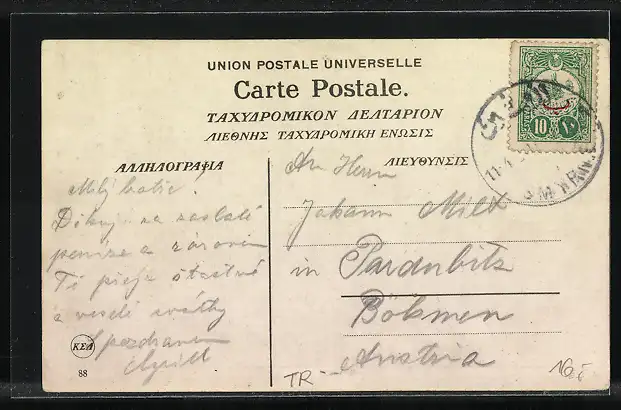 UNION POSTALE UNIVERSELLE
Carte Postale.
ΤΑΧΥΔΡΟΜΙΚΟΝ ΔΕΛΤΑΡΙΟΝ
ΔΙΕΘΝΗΣ ΤΑΧΥΔΡΟΜΙΚΗ ΕΝΩΣΙΣ
ΑΛΛΗΛΟΓΡΑΦΙΑ
Milý
Děkuji za zaslané
peníze a zároveň
Ti přeji šťastné
a veselé svátky
S pozdravem
ΚΣΔ
88
ΔΙΕΥΘΥΝΣΙΣ
An Herrn
Johann
in Pardubitz
Böhmen
Austria
TR-
10 ١٠
11-4